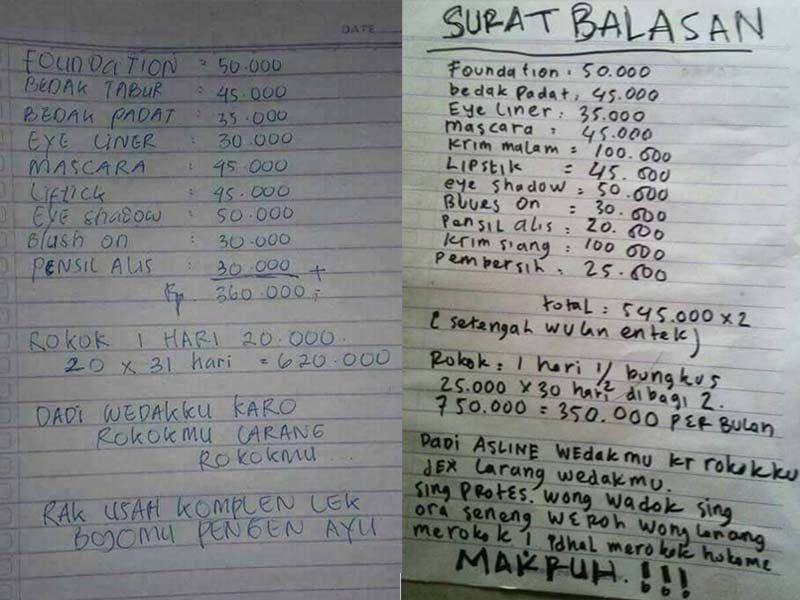 DATE
FOUNDATION : 50.000
BEDAK TABUR : 45.000
BEDAK PADAT : 35.000
EYE LINER : 30.000
MASCARA : 45.000
Liftick : 45.000
Eye Shadow : 50.000
Blush on : 30.000
PENSIL ALIS : 30.000 +
Rp. 360.000 ;-
ROKOK 1 HARI 20.000.
20 x 31 hari = 620.000
DADI WEDAKKU KARO
ROKOKMU LARANG
ROKOKMU ...
RAK USAH KOMPLEN LEK
BOJOMU PENGEN AYU
SURAT BALASAN
Foundation : 50.000
bedak Padat : 45.000
Eye Liner : 35.000
mascara : 45.000
Krim malam : 100.000
Lipstik = 45.000
eye shadow = 50.000
Blues on = 30.000
Pensil alis : 20.000
Krim siang : 100 000
Pembersih : 25.000
total : 545.000 x 2
( setengah wulan entek )
Rokok : 1 hari 1/2 bungkus
25.000 x 30 hari dibagi 2.
750.000 = 350.000 PER Bulan
Dadi ASLINE WEdakmu kr rokokku
JEK Larang wedakmu.
Sing PROTES. wong wadok sing
ora seneng WEROH wong Lanang
merokok ! Pdhal merokok hokome
MAKRUH. !!!